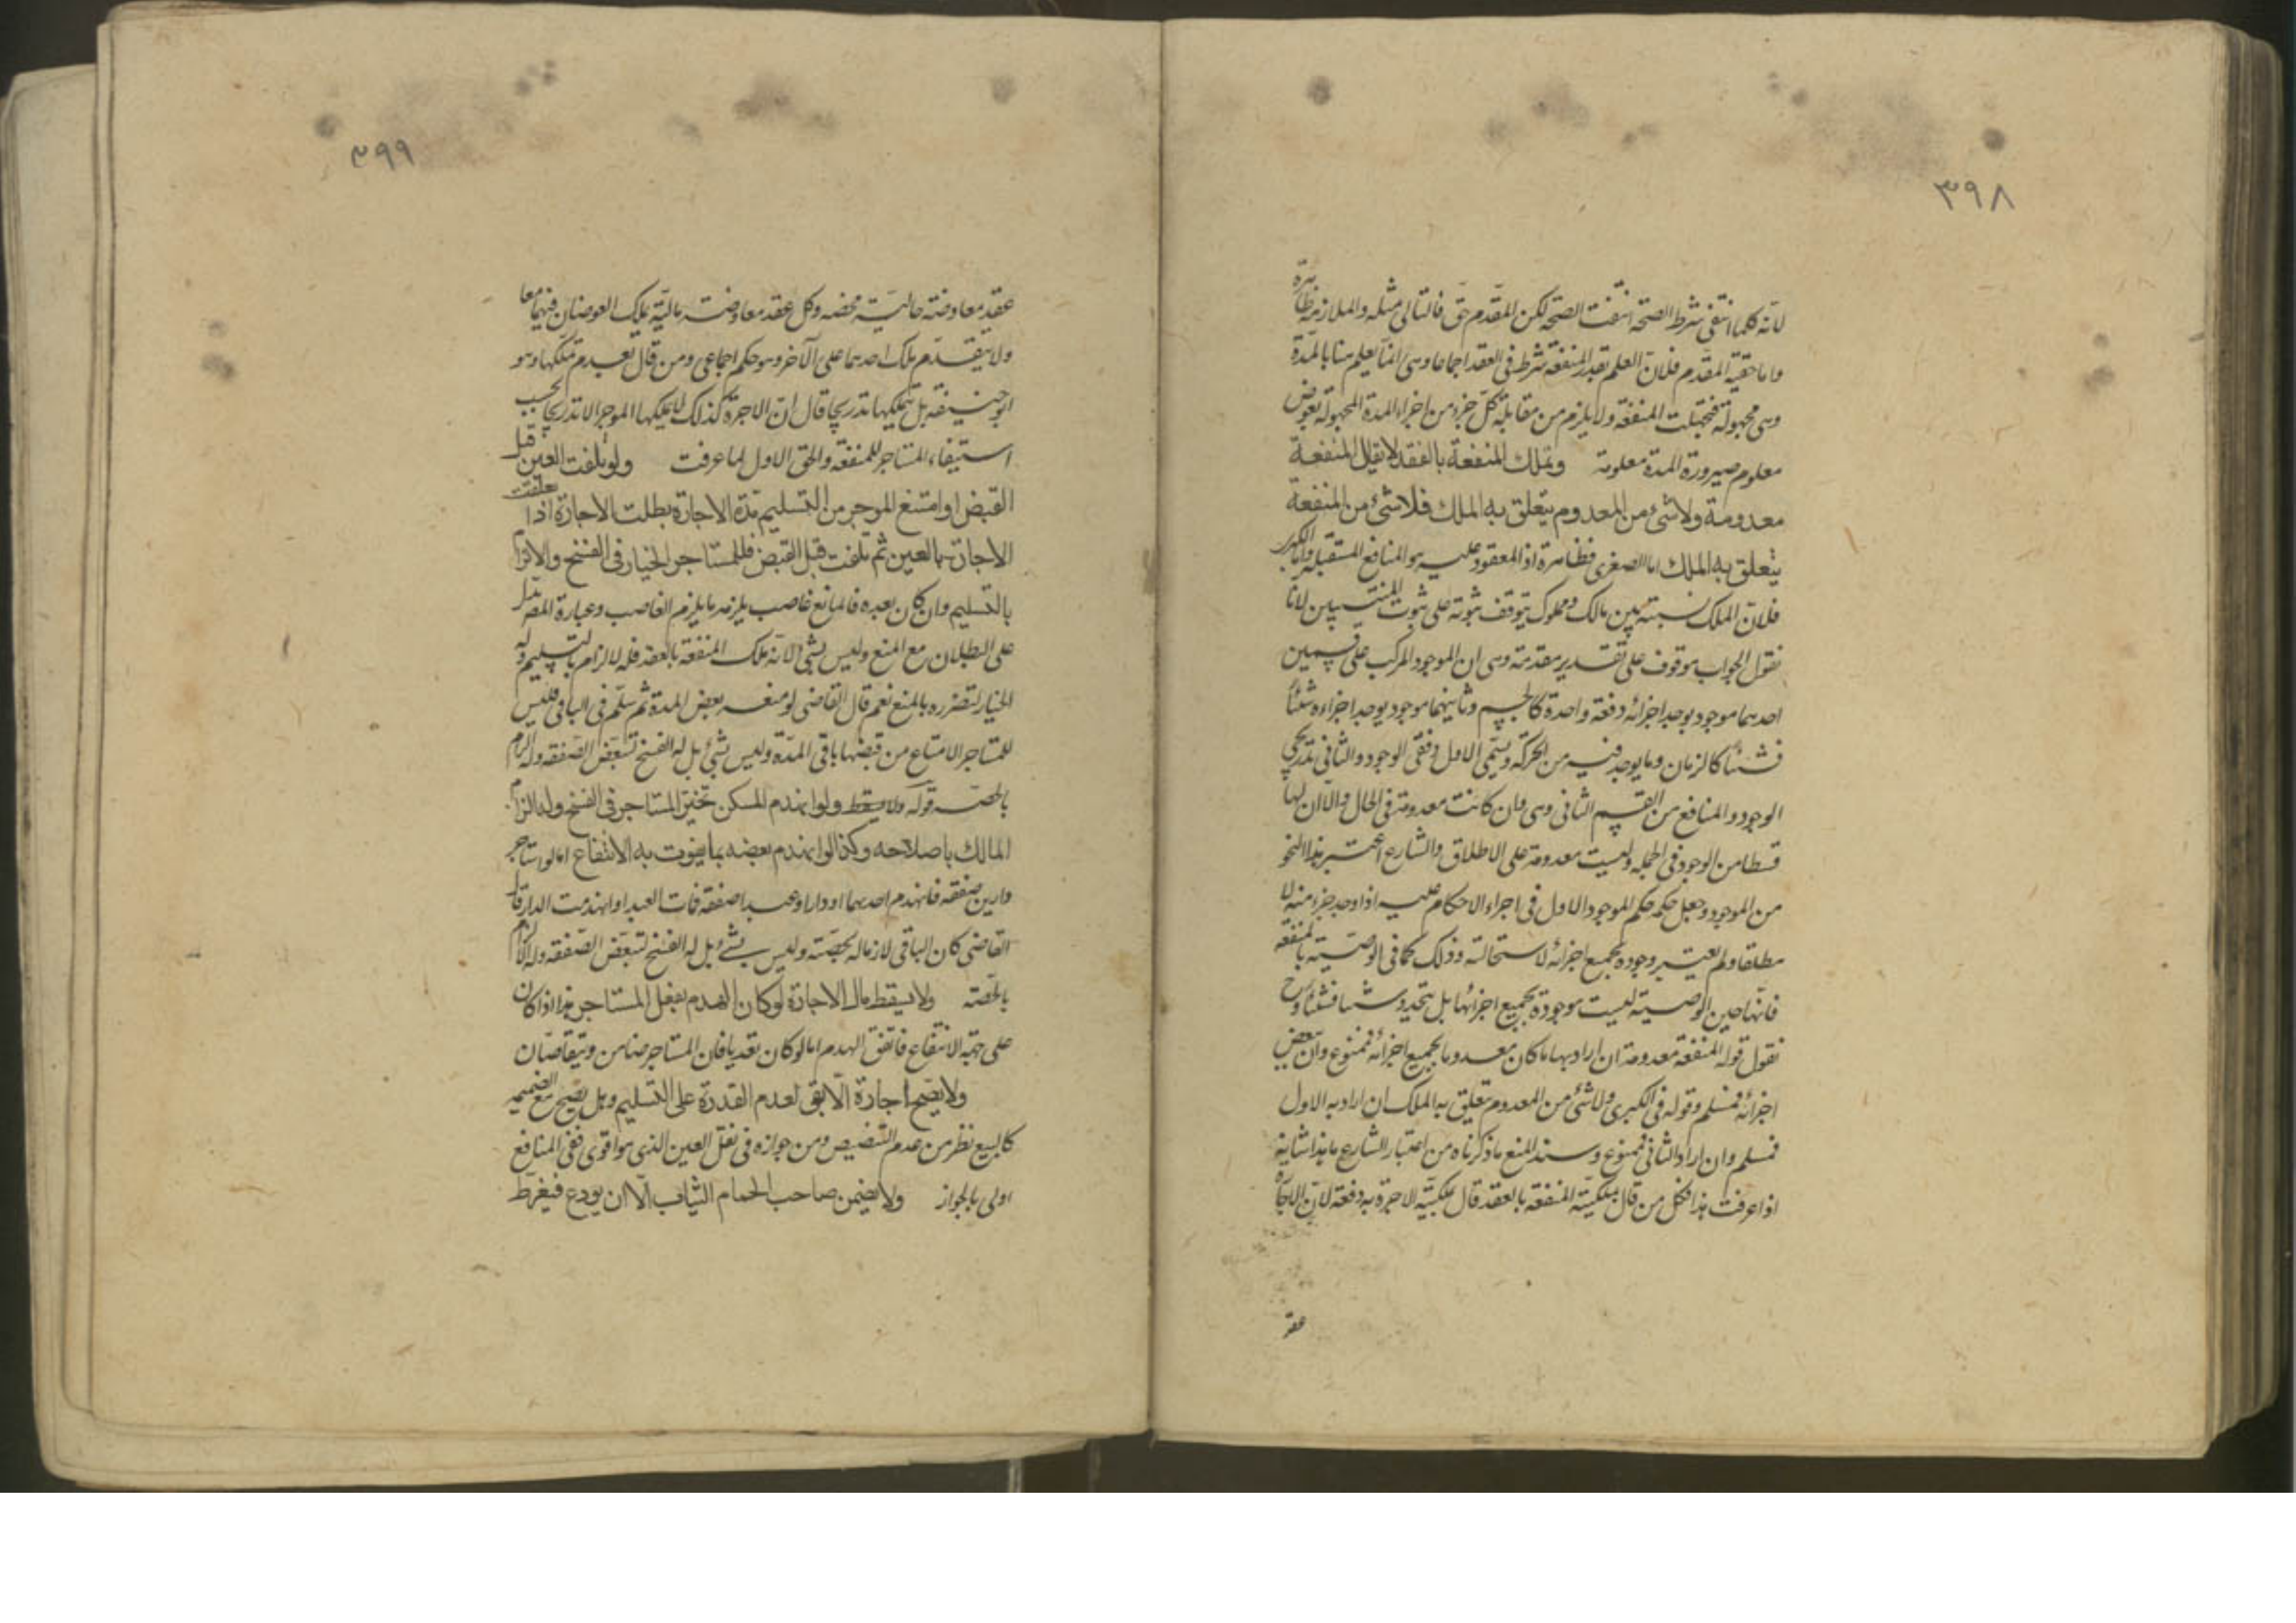 ٣٩٨
لانه كلما انتفى شرط الصحة انتفت الصحة لكن المقدم حق فالتالى مثله والملازمة ظاهرة
واما حقية المقدم فلان العلم بقدر المنفعة شرط فى العقد اجماعا وهى انما يعلم هنا بالمدة
وهى مجهولة فجهلت المنفعة ولا يلزم من مقابلة كل جزء من اجزاء المدة المجهولة بعوض
معلوم صيرورة المدة معلومة وتملك المنفعة بالعقد لا يقال المنفعة
معدومة ولا شئ من المعدوم يتعلق به الملك فلا شئ من المنفعة
يتعلق به الملك اما الصغرى فظاهرة اذ المعقود عليه هو المنافع المستقبلة واما الكبرى
فلان الملك نسبة بين مالك ومملوك يتوقف ثبوته على ثبوت المنتسبين لانا
نقول الجواب موقوف على تقدير مقدمة وهى ان الموجود المركب على قسمين
احدهما موجود يوجد اجزائه دفعة واحدة كالجسم وثانيهما موجود يوجد اجزاءه شئا
فشئا كالزمان وما يوجد فيه من الحركة ويسمى الاول دفعى الوجود والثانى تدريجى
الوجود والمنافع من القسم الثانى وهى وان كانت معدومة فى الحال والآن لها
قسطا من الوجود فى الجملة وليست معدومة على الاطلاق والشارع اعتبر هذا النحو
من الموجود وجعل حكمه حكم الموجود الاول فى اجراء الاحكام عليه اذا وجد جزء منه لا
مطلقا ولم يعتبر وجوده بجميع اجزائه لاستحالته وذلك كما فى الوصية بالمنفعة
فانها حين الوصية ليست موجودة بجميع اجزائها بل يتجدد شئا فشئا وح
نقول قوله المنفعة معدومة ان اراد بها ما كان معدوما بجميع اجزائه فممنوع وان ببعض
اجزائه فمسلم وقوله فى الكبرى ولا شئ من المعدوم يتعلق به الملك ان اراد به الاول
فمسلم وان اراد الثانى فممنوع وسند المنع ما ذكرناه من اعتبار الشارع ما هذا شانه
اذا عرفت هذا فكل من قال بملكية المنفعة بالعقد قال بملكية الاجرة به دفعة لان الاجارة
عقد
٣٩٩
عقد معاوضة مالية محضه وكل عقد معاوضة مالية يملك العوضان فيهما معا
ولا يتقدم ملك احدهما على الآخر وهو حكم اجماعى ومن قال بعدم تملكها وهو
ابو حنيفة بل يتملكها تدريجا قال ان الاجرة كذلك لا يملكها الموجر الا تدريجا بحسب
استيفاء المستاجر للمنفعة والحق الاول لما عرفت ولو تلفت العين قبل
القبض او امتنع الموجر من التسليم مدة الاجارة بطلت الاجارة اذا تعلقت
الاجارة بالعين ثم تلفت قبل القبض فللمستاجر الخيار فى الفسخ والالزام
بالتسليم وان كان بعده فالمانع غاصب يلزمه ما يلزم الغاصب وعبارة المصـ تدل
على البطلان مع المنع وليس بشئ لانه ملك المنفعة بالعقد فله الالزام بالتسليم وله
الخيار لتضرره بالمنع نعم قال القاضى لو منعه بعض المدة ثم سلم فى الباقى فليس
للمستاجر الامتناع من قبضها باقى المدة وليس بشئ بل له الفسخ لتبعض الصفقه وله الزام
بالحصه قوله ولا يسقط ولو انهدم المسكن تخير المستاجر فى الفسخ وله الزام
المالك باصلاحه وكذا لو انهدم بعضه بما يفوت به الانتفاع اما لو استاجر
دارين صفقه فانهدم احدهما او دارا وعبدا صفقه فمات العبد او انهدمت الدار قال
القاضى كان الباقى لازما له بحصته وليس بشئ بل له الفسخ لتبعض الصفقه وله الالزام
بالحصه ولا يسقط مال الاجارة لو كان الهدم بفعل المستاجر هذا اذا كان
على جهة الانتفاع فاتفق الهدم اما لو كان تعديا فان المستاجر ضامن ويتقاصان
ولا يصح اجارة الآبق لعدم القدرة على التسليم وهل يصح مع الضميمه
كالبيع نظر من عدم التنصيص ومن جوازه فى نقل العين الذى هو اقوى ففى المنافع
اولى بالجواز ولا يضمن صاحب الحمام الثياب الا ان يودع فيفرط